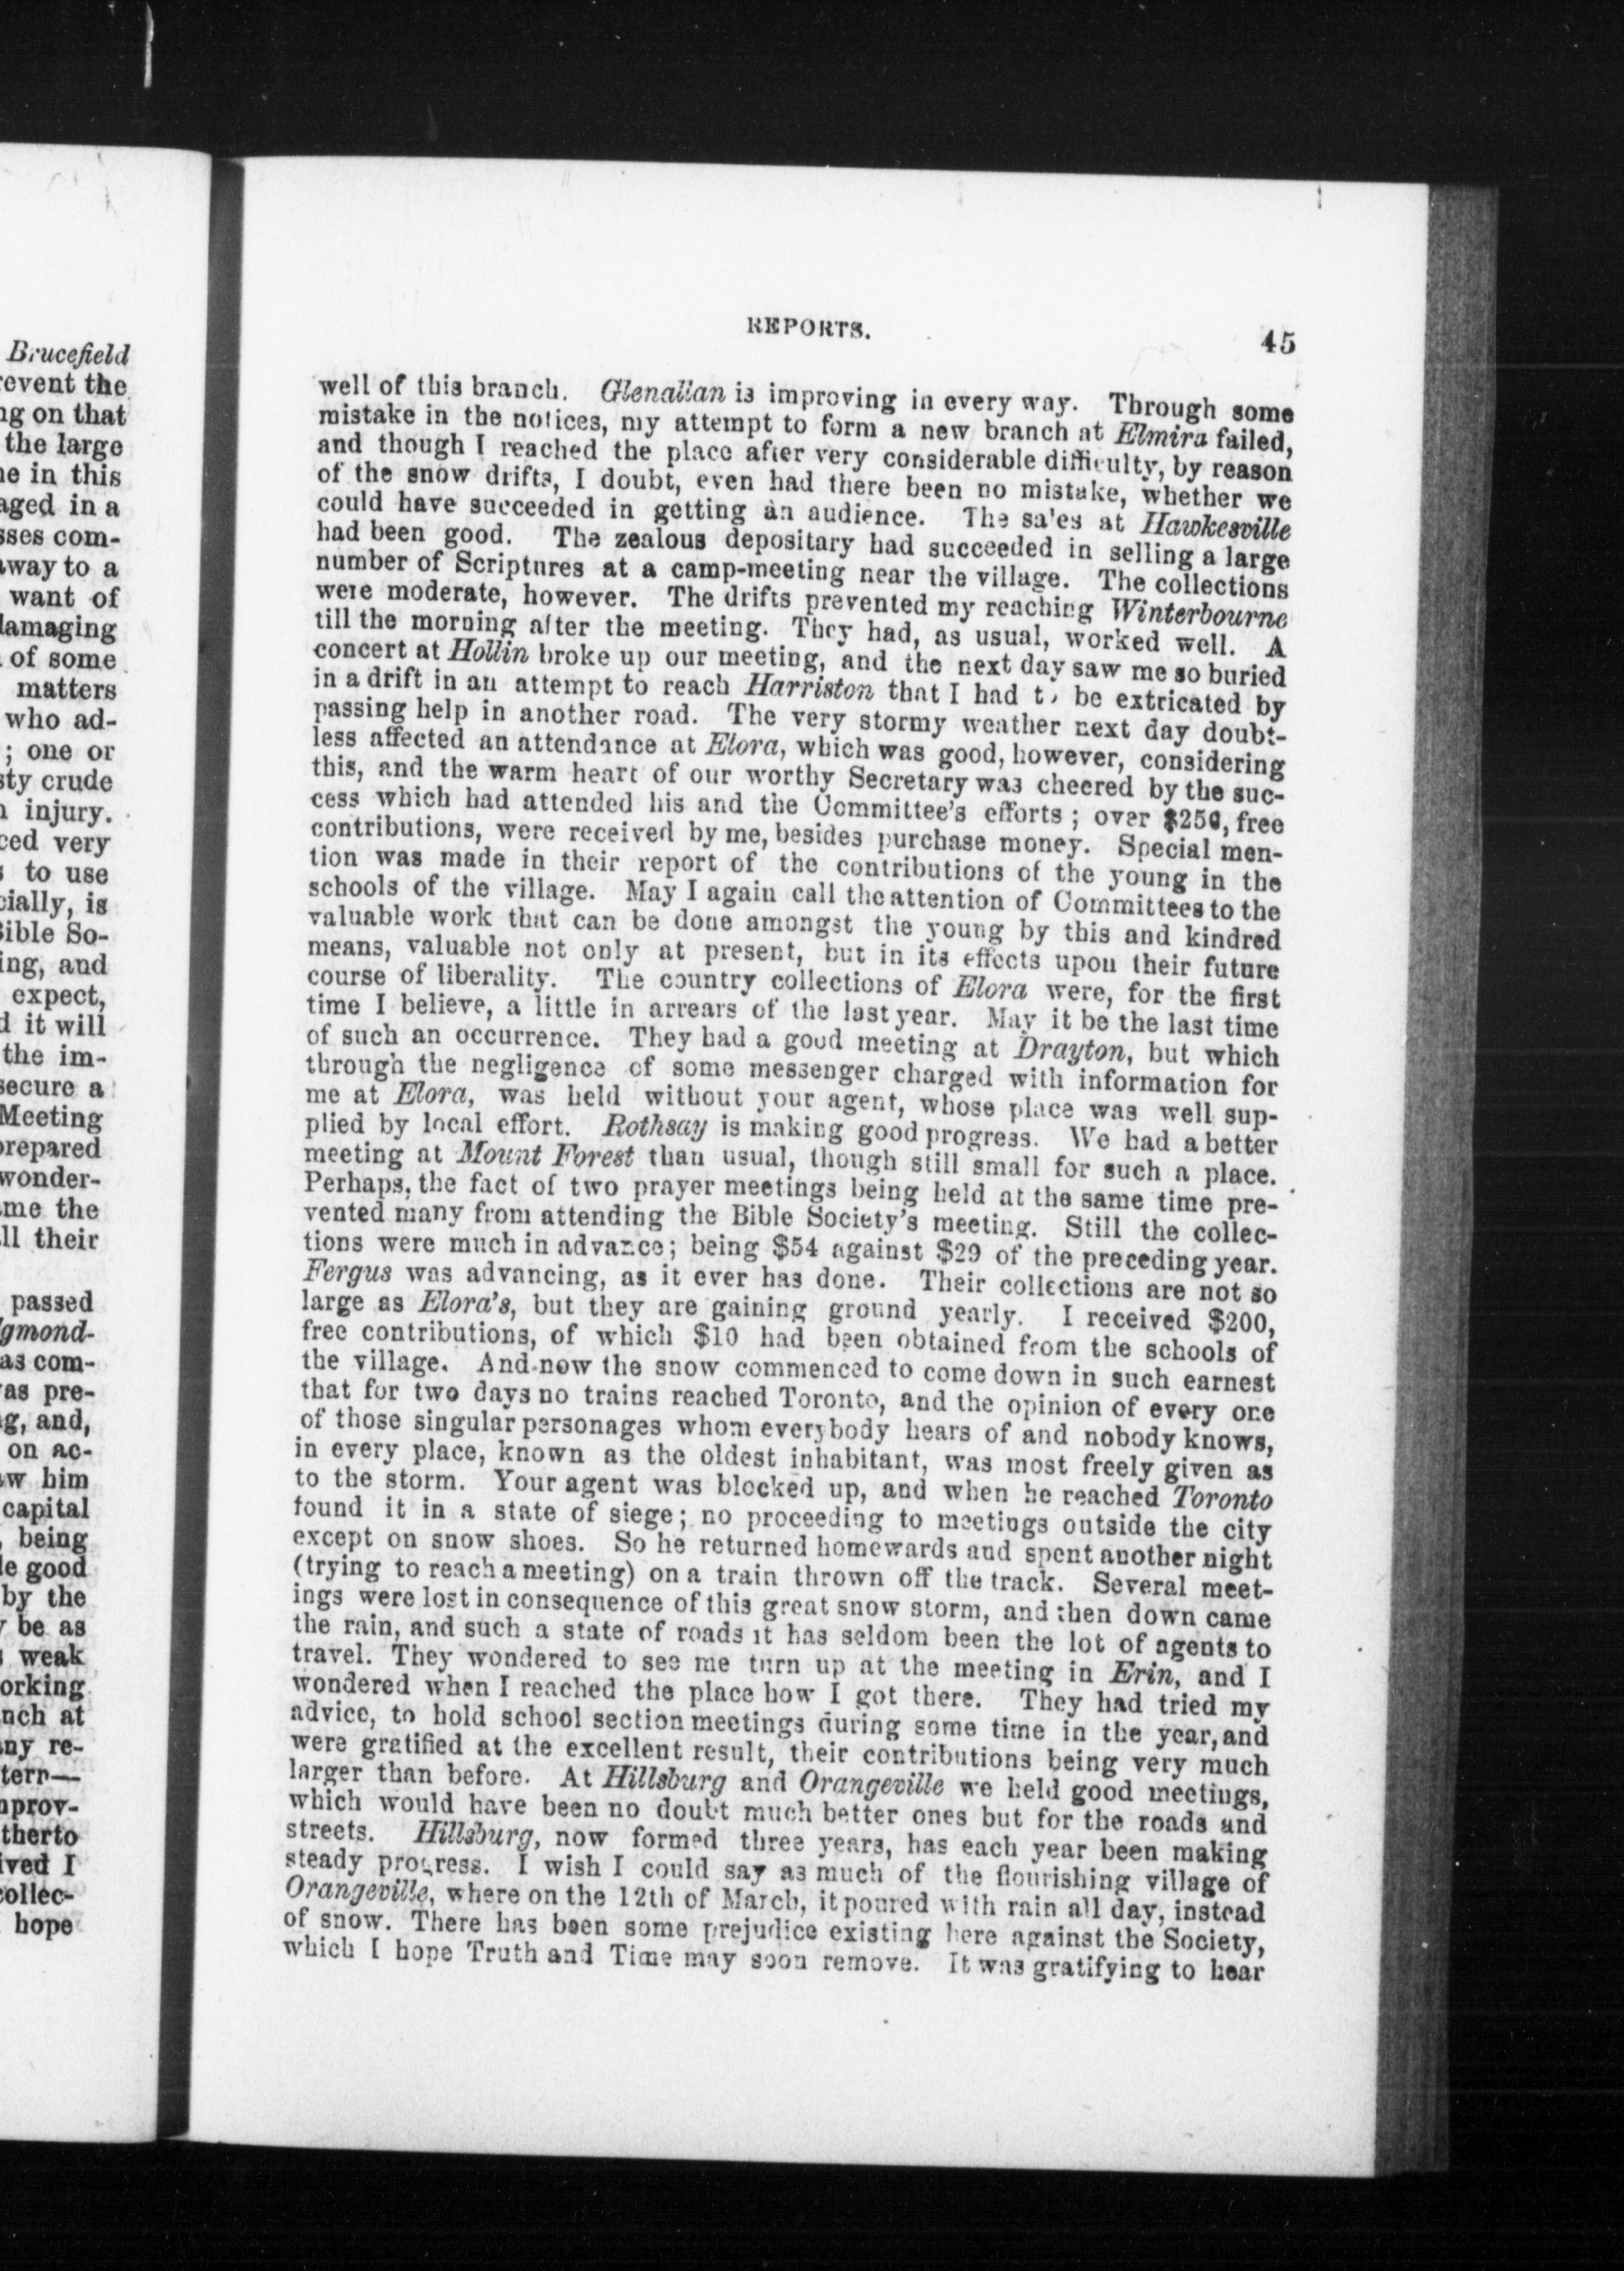 Brucefield
revent the
ng on that
the large
ne in this
aged in a
sses com-
away to a
want of
damaging
of some
matters
who ad-
; one or
sty crude
injury.
ced very
to use
cially, is
Bible So-
ing, and
expect,
d it will
the im-
secure a
Meeting
prepared
wonder-
ame the
all their
passed
gmond-
as com-
as pre-
g, and,
on ac-
aw him
capital
, being
le good
by the
y be as
weak
orking
nch at
any re-
tern—
nprov-
therto
ived I
collec-
hope
REPORTS.
45
well of this branch. Glenallan is improving in every way. Through some
mistake in the notices, my attempt to form a new branch at Elmira failed,
and though I reached the place after very considerable difficulty, by reason
of the snow drifts, I doubt, even had there been no mistake, whether we
could have succeeded in getting an audience. The sales at Hawkesville
had been good. The zealous depositary had succeeded in selling a large
number of Scriptures at a camp-meeting near the village. The collections
were moderate, however. The drifts prevented my reaching Winterbourne
till the morning after the meeting. They had, as usual, worked well. A
concert at Hollin broke up our meeting, and the next day saw me so buried
in a drift in an attempt to reach Harriston that I had to be extricated by
passing help in another road. The very stormy weather next day doubt-
less affected an attendance at Elora, which was good, however, considering
this, and the warm heart of our worthy Secretary was cheered by the suc-
cess which had attended his and the Committee's efforts; over $250, free
contributions, were received by me, besides purchase money. Special men-
tion was made in their report of the contributions of the young in the
schools of the village. May I again call the attention of Committees to the
valuable work that can be done amongst the young by this and kindred
means, valuable not only at present, but in its effects upon their future
course of liberality. The country collections of Elora were, for the first
time I believe, a little in arrears of the last year. May it be the last time
of such an occurrence. They had a good meeting at Drayton, but which
through the negligence of some messenger charged with information for
me at Elora, was held without your agent, whose place was well sup-
plied by local effort. Rothsay is making good progress. We had a better
meeting at Mount Forest than usual, though still small for such a place.
Perhaps, the fact of two prayer meetings being held at the same time pre-
vented many from attending the Bible Society's meeting. Still the collec-
tions were much in advance; being $54 against $29 of the preceding year.
Fergus was advancing, as it ever has done. Their collections are not so
large as Elora's, but they are gaining ground yearly. I received $200,
free contributions, of which $10 had been obtained from the schools of
the village. And now the snow commenced to come down in such earnest
that for two days no trains reached Toronto, and the opinion of every one
of those singular personages whom everybody hears of and nobody knows,
in every place, known as the oldest inhabitant, was most freely given as
to the storm. Your agent was blocked up, and when he reached Toronto
found it in a state of siege; no proceeding to meetings outside the city
except on snow shoes. So he returned homewards and spent another night
(trying to reach a meeting) on a train thrown off the track. Several meet-
ings were lost in consequence of this great snow storm, and then down came
the rain, and such a state of roads it has seldom been the lot of agents to
travel. They wondered to see me turn up at the meeting in Erin, and I
wondered when I reached the place how I got there. They had tried my
advice, to hold school section meetings during some time in the year, and
were gratified at the excellent result, their contributions being very much
larger than before. At Hillsburg and Orangeville we held good meetings,
which would have been no doubt much better ones but for the roads and
streets. Hillsburg, now formed three years, has each year been making
steady progress. I wish I could say as much of the flourishing village of
Orangeville, where on the 12th of March, it poured with rain all day, instead
of snow. There has been some prejudice existing here against the Society,
which I hope Truth and Time may soon remove. It was gratifying to hear